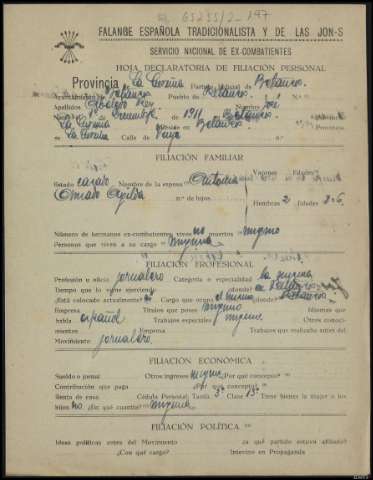 65255/2-197
FALANGE ESPAÑOLA TRADICIONALISTA Y DE LAS JON-S
SERVICIO NACIONAL DE EX-COMBATIENTES
HOJA DECLARATORIA DE FILIACIÓN PERSONAL
Provincia La Coruña Partido Judicial de Betanzos.
Pueblo de Betanzos.
Apellidos Nombre José
de 1911 Betanzos.
La Coruña Betanzos Provincia
La Coruña Calle de
FILIACIÓN FAMILIAR
Varones Edades
Estado casado Nombre de la esposa Antonia
n.º de hijos Hembras 2 Edades 8-6
Número de hermanos ex-combatientes vivos no muertos ninguno
Personas que viven a su cargo ninguna
FILIACIÓN PROFESIONAL
Profesión u oficio jornalero Cargo o especialidad la misma
Tiempo que lo viene ejerciendo ¿dónde? en
¿Está colocado actualmente? Cargo que ocupa el mismo ¿dónde? Betanzos
Empresa Títulos que posee ninguno Idiomas que
habla español Trabajos especiales ninguno Otros conoci-
mientos Empresa Trabajos que realizaba antes del
Movimiento jornalero.
FILIACIÓN ECONÓMICA
Sueldo o jornal Otros ingresos ninguno ¿Por qué concepto?
Contribución que paga ¿Por qué concepto?
Renta de casa Cédula Personal: Tarifa 3ª Clase 13ª Tiene bienes la mujer o los
hijos no ¿En qué cuantía? ninguna
FILIACIÓN POLÍTICA
Ideas políticas antes del Movimiento ¿a qué partido estuvo afiliado?
¿Con qué cargo? Intervino en Propaganda